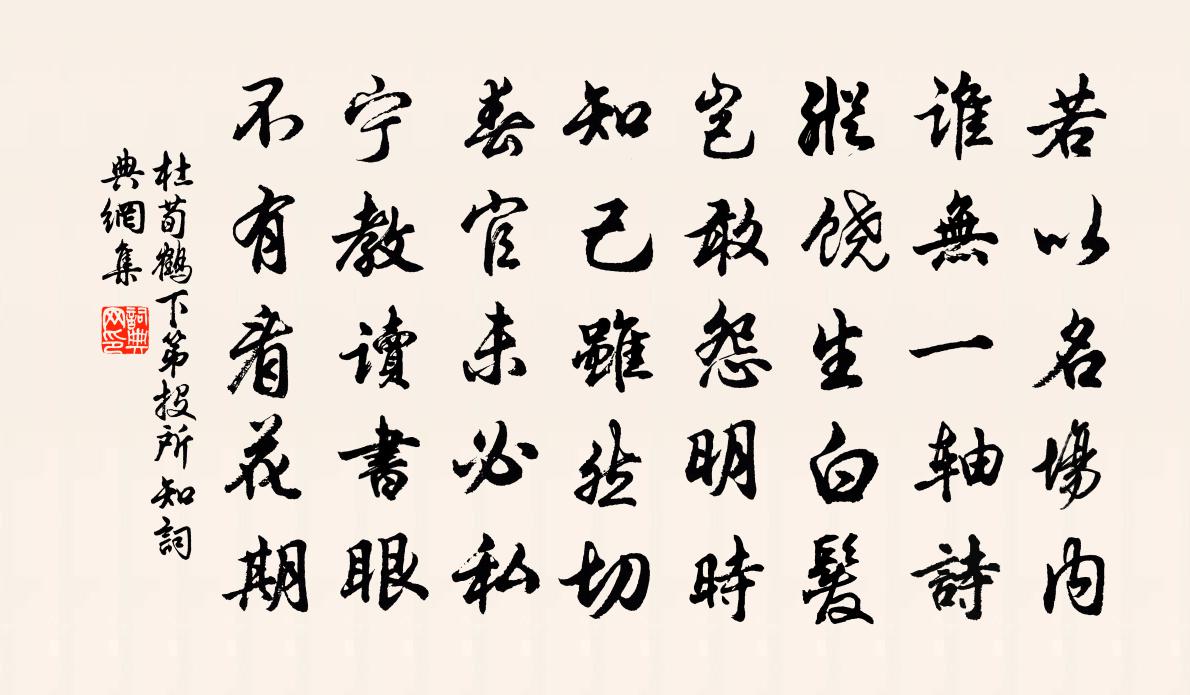 若以名場内
誰無一軸詩
縱饶生白髮
岂敢怨明時
知己雖然切
春官未必私
宁教讀書眼
不有看花期
杜荀鶴下第投所知詞
典網集
詞典网印